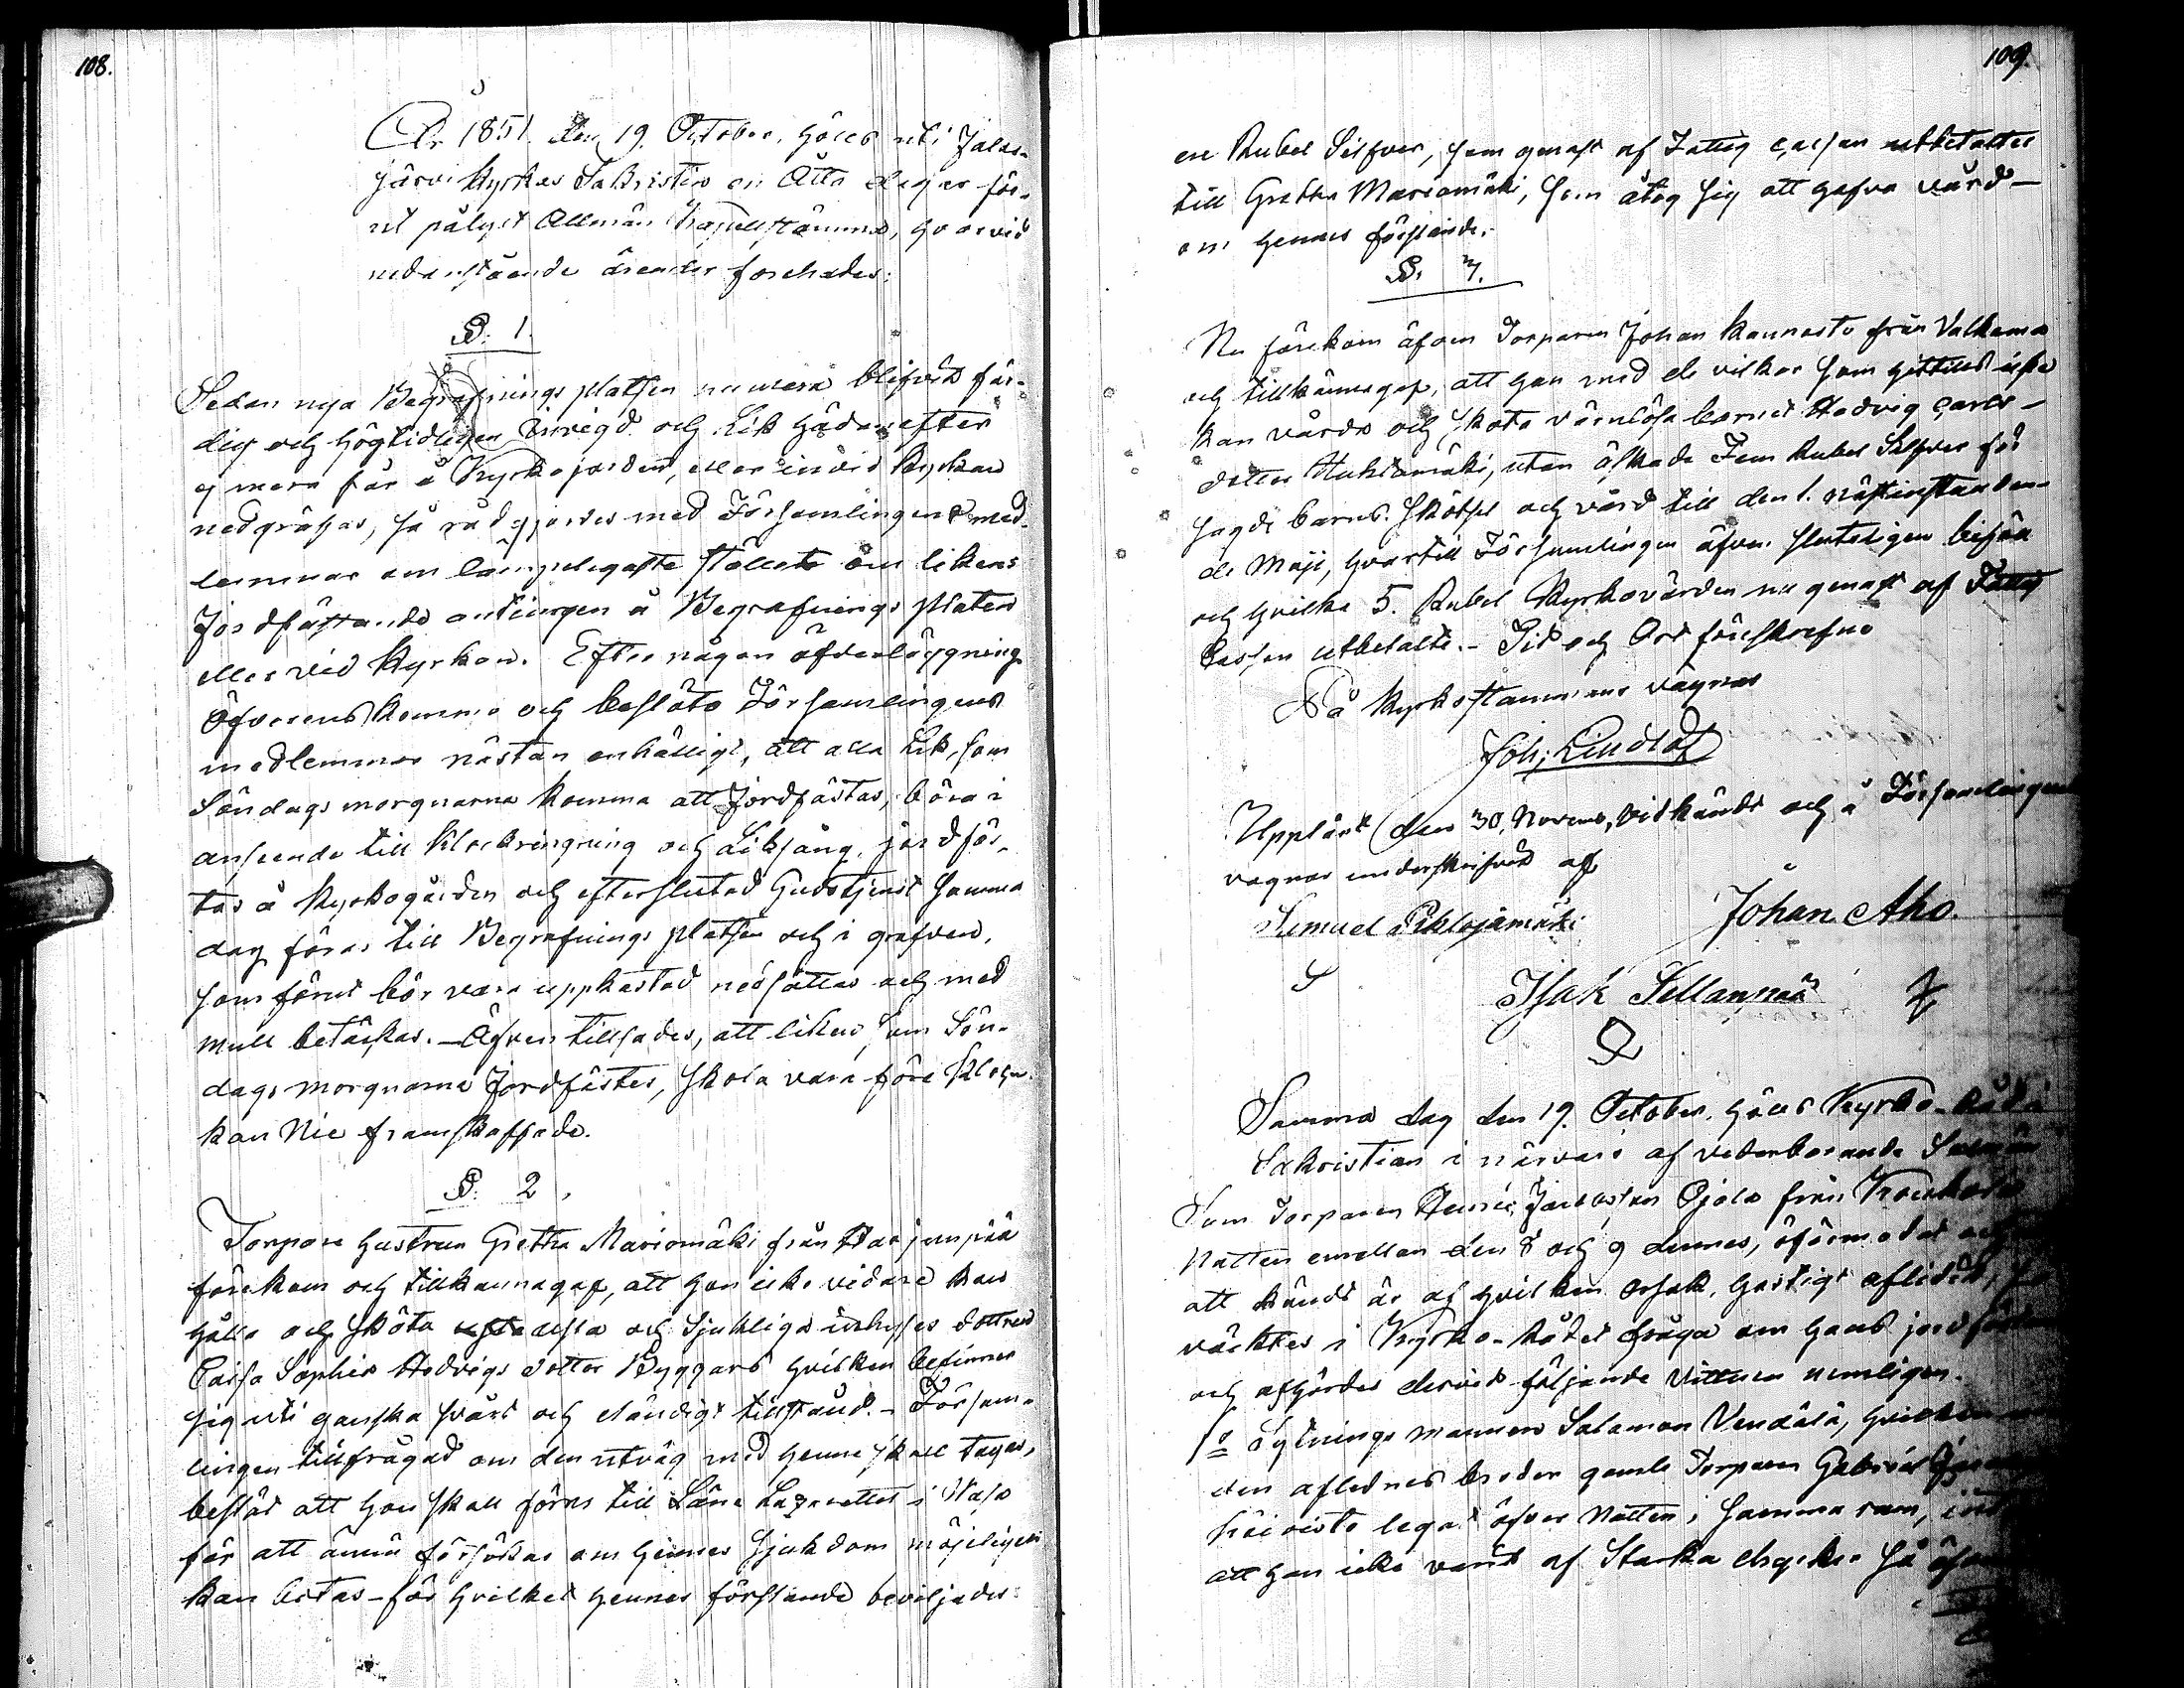 108.
År 1851. den 19. October, hölls uti Jalas-
järvi kyrkas Sakristia en Åtta dagar för-
ut pålyst Allmän Kapellstämma, hvarvid
nedanstående ärender förehades:
§. 1.
Sedan nya Begrafnings platsen numera blifvit fär-
dig och högtidligen invigd och Lik hädanefter
ej mera får å Kyrkojorden, eller invid Kyrkan
nedgräfvas, så rådgjordes med Församlingens med-
lemmar om lämpligaste stället om likens
Jordfästande antingen å Begrafnings platsen
eller vid Kyrkan. Efter någon öfverläggning
öfverenskommo och beslöto Församlingens
medlemmar nästan enhälligt, att alla Lik, som
Söndags morgnarna komma att Jordfästas, böra i
anseende till Klockringning och Liksång, jordfäs-
tas å Kyrkogården och efter slutad Gudstjenst samma
dag föras till Begrafnings platsen och i grafven,
som förut bör vara uppkastad nedsättas och med
mull betäckas. - Äfven tillsades, att liken som Sön-
dags morgnarna Jordfästes, skola vara före Kloc-
kan Nie framskaffade.
§. 2.
Torpare hustrun Gretha Mariomäki från Harjunpää
förekom och tillkännagaf, att hon icke vidare kan
hålla och sköta usla och sjukliga inhyses dottren
Caisa Sophia Hedvigs dotter Byggars hvilken befinner
sig uti ganska svårt och eländigt tillstånd. - Försam-
lingen tillfrågad om den utväg med henne skall tagas,
beslöt att hon skall föras till Läns Lazarettet i Wasa
för att ännu försökas om hennes sjukdom möjligen
kan botas - för hvilket hennes förstånde beviljades
109.
en Rubel Silfver, som genast af Fattig cassan utbetaltes
till Gretha Mariomäki, som åtog sig att hafva vård
om hennes förstånde.
§. 3.
Nu förekom äfven Torparen Johan Kannasto från Valkama
och tillkännagaf, att han med de vilkor som hittills icke
kan vårda och sköta värnlösa barnet Hedvig Carls-
dotter Huhtamäki, utan äskade Fem Rubel Silfver för
sagde barns skötsel och vård till den 1. nästinstunden-
de Maji, hvartill Församlingen äfven slutligen biföll
och hvilka 5. Rubel Kyrkovärden nu genast af Fattig
Cassan utbetalte. - Tid och Ort förskrefne
På Kyrkostämmans vägnar
Joh: Lindlöf
Uppläst den 30. Novemb, vidkändt och å Församlingens
vägnar underskrifvit af
Samuel Johan Aho.
Isak Sillanpää
Samma dag den 19. October, hölls Kyrko-Råd i
Sakristian i närvaro af vederbörande
Som Torparen Henric Jacobsson Ojala från
Natten emellan den 8 och 9 dennes, oförmodat
att kändt är af hvilken orsak, hastigt aflidit,
väcktes i Kyrko-Rådet fråga om hans
och afhördes dervid följande Vittnen nemligen.
1o Sytnings mannen Salamon Vendälä, hvilken
den aflednes broder gamle Torparen Gabriel
legat öfver Natten i samma rum,
att han icke varit af Starka drycker